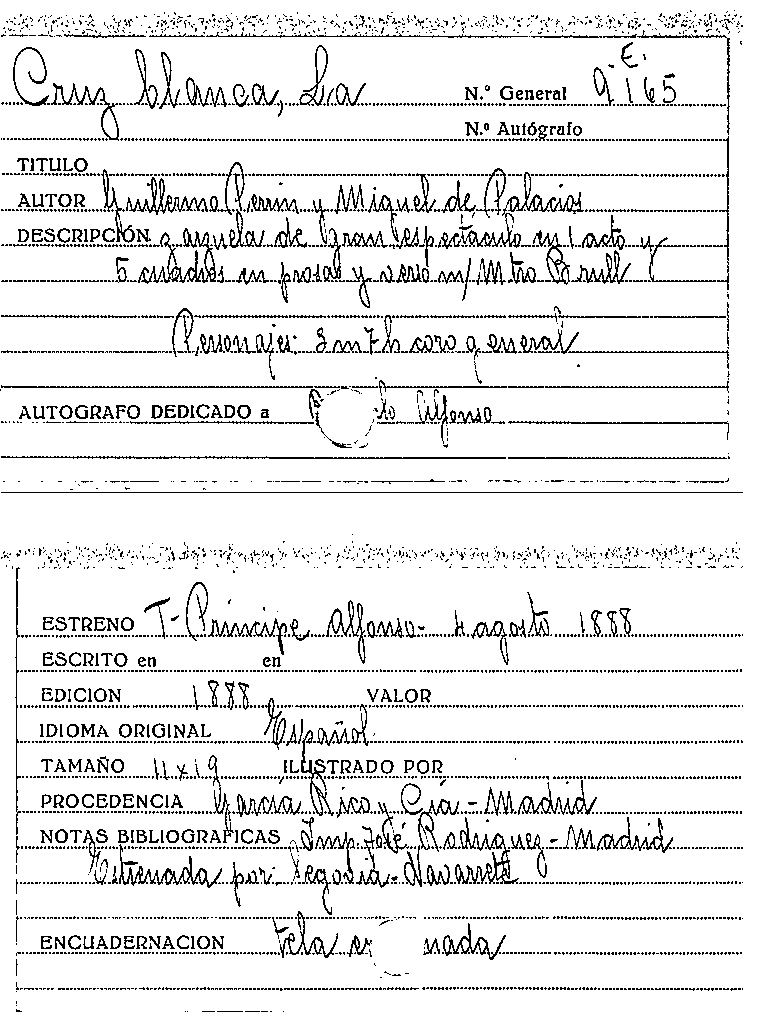 Cruz blanca, La
N.º General 9165 E.
N.º Autógrafo
TITULO
AUTOR Guillermo Perrin y Miguel de Palacios
DESCRIPCIÓN zarzuela de Gran Espectáculo en 1 acto y
5 cuadros en prosa y verso m/ Mtro Brull
Personajes: 3 m 7 h coro general.
AUTOGRAFO DEDICADO a Alfonso
ESTRENO T- Príncipe Alfonso- 4 agosto 1888
ESCRITO en en
EDICION 1888 VALOR
IDIOMA ORIGINAL Español.
TAMAÑO 11 x 19 ILUSTRADO POR
PROCEDENCIA García Rico y Cía - Madrid
NOTAS BIBLIOGRAFICAS Imp. José Rodríguez - Madrid
Estrenada por: Segovia - Navarrete
ENCUADERNACION tela nada